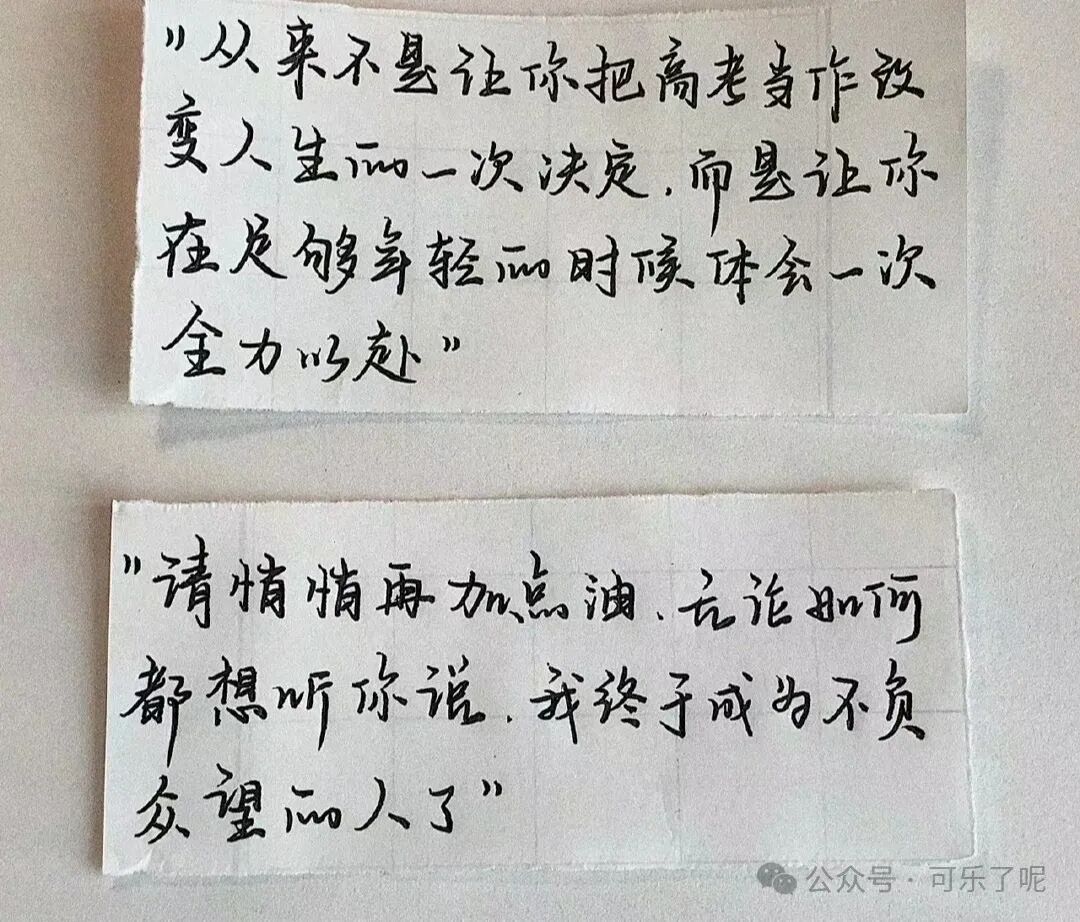 "从来不是让你把高考当作改
变人生的一次决定,而是让你
在足够年轻的时候体会一次
全力以赴"
"请悄悄再加点油、无论如何
都想听你说,我终于成为不负
众望的人了"
公众号·可乐了呢